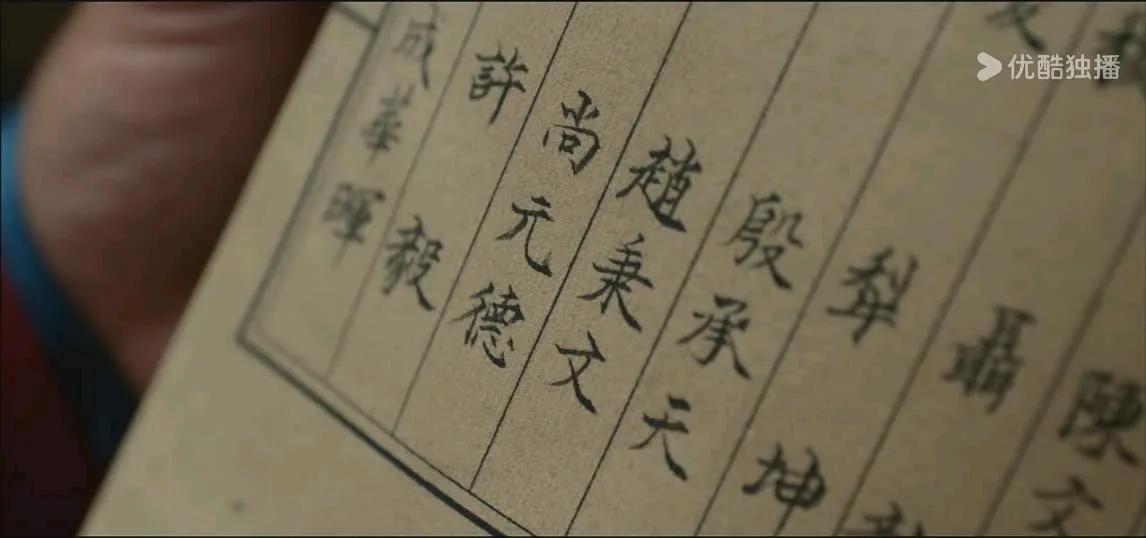 陳文
聶
坤
殷承天
趙秉文
尚元德
許毅
成華暉
优酷独播